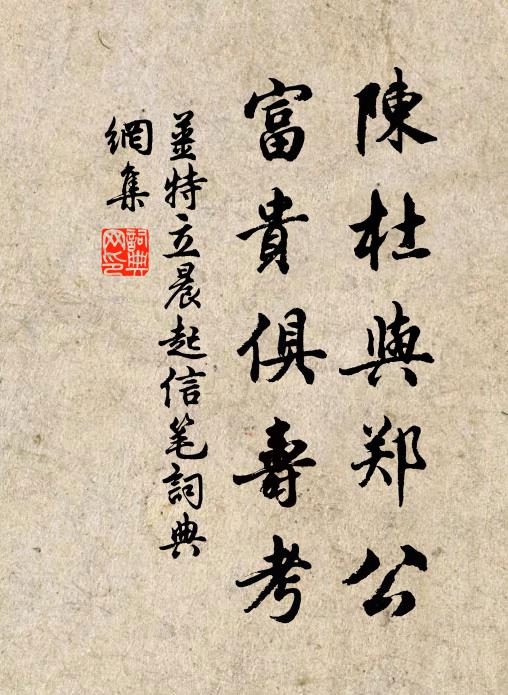 陳杜與郑公
富貴俱壽考
姜特立晨起信笔詞典
網集
詞典
网印